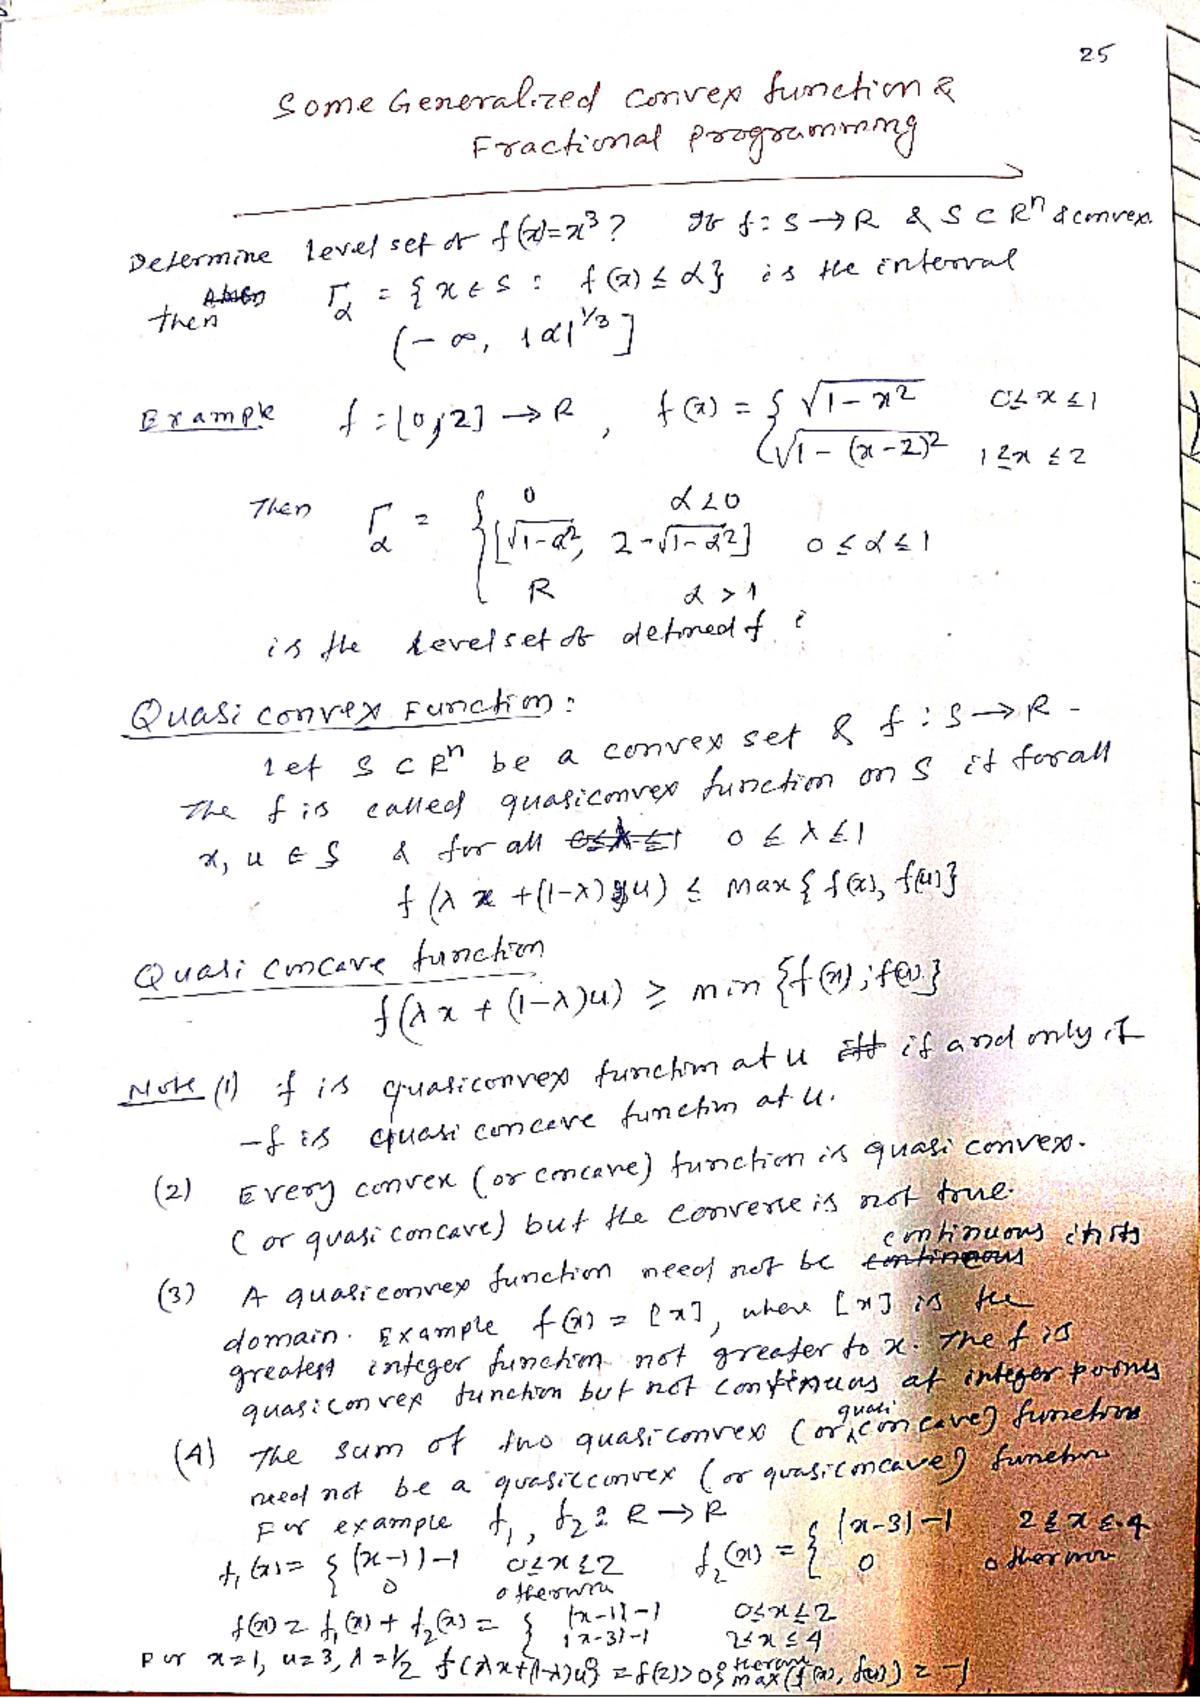 25
Some Generalized convex function &
Fractional Programming
Determine level set of f(x)=x³? If f: S → R & S ⊂ Rⁿ & convex
then Γ_α = {x ∈ S : f(x) ≤ α} is the interval
(-∞, |α|^{1/3}]
Example f: [0,2] → R, f(x) = { √(1-x²) 0≤x≤1
√(1-(x-2)²) 1≤x≤2
Then Γ_α = { 0 α<0
[√(1-α²), 2-√(1-α²)] 0≤α≤1
R α>1
is the level set of defined f.
Quasi convex Function:
Let S ⊂ Rⁿ be a convex set & f: S → R -
The f is called quasiconvex function on S if for all
x, u ∈ S & for all 0 ≤ λ ≤ 1
f(λx + (1-λ)u) ≤ max{f(x), f(u)}
Quasi concave function
f(λx + (1-λ)u) ≥ min {f(x), f(u)}
Note (1) f is quasiconvex function at u if and only if
-f is quasi concave function at u.
(2) Every convex (or concave) function is quasi convex.
(or quasi concave) but the converse is not true.
(3) A quasiconvex function need not be continuous
domain. Example f(x) = [x], where [x] is the
greatest integer function not greater to x. The f is
quasiconvex function but not continuous at integer points
(4) The sum of two quasiconvex (or quasi concave) functions
need not be a quasiconvex (or quasiconcave) function
For example f₁, f₂: R → R
f₁(x) = { |x-1|-1 0≤x≤2 f₂(x) = { |x-3|-1 2≤x≤4
0 otherwise 0 otherwise
f(x) = f₁(x) + f₂(x) = { |x-1|-1 0≤x≤2
|x-3|-1 2≤x≤4
otherwise
For x=1, u=3, λ=1/2 f(λx+(1-λ)u) = f(2) > 0 max{f(x), f(u)} = -1